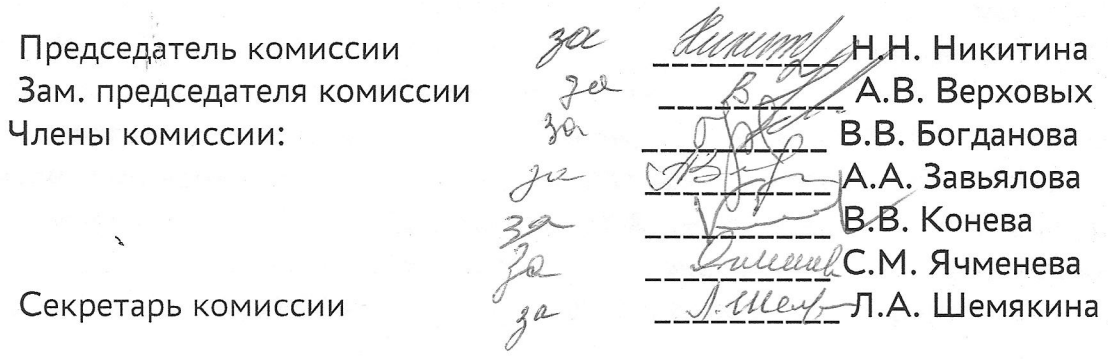 Председатель комиссии за Никит Н.Н. Никитина
Зам. председателя комиссии за А.В. Верховых
Члены комиссии: за В.В. Богданова
за А.А. Завьялова
за В.В. Конева
за С.М. Ячменева
Секретарь комиссии за Л.А. Шемякина